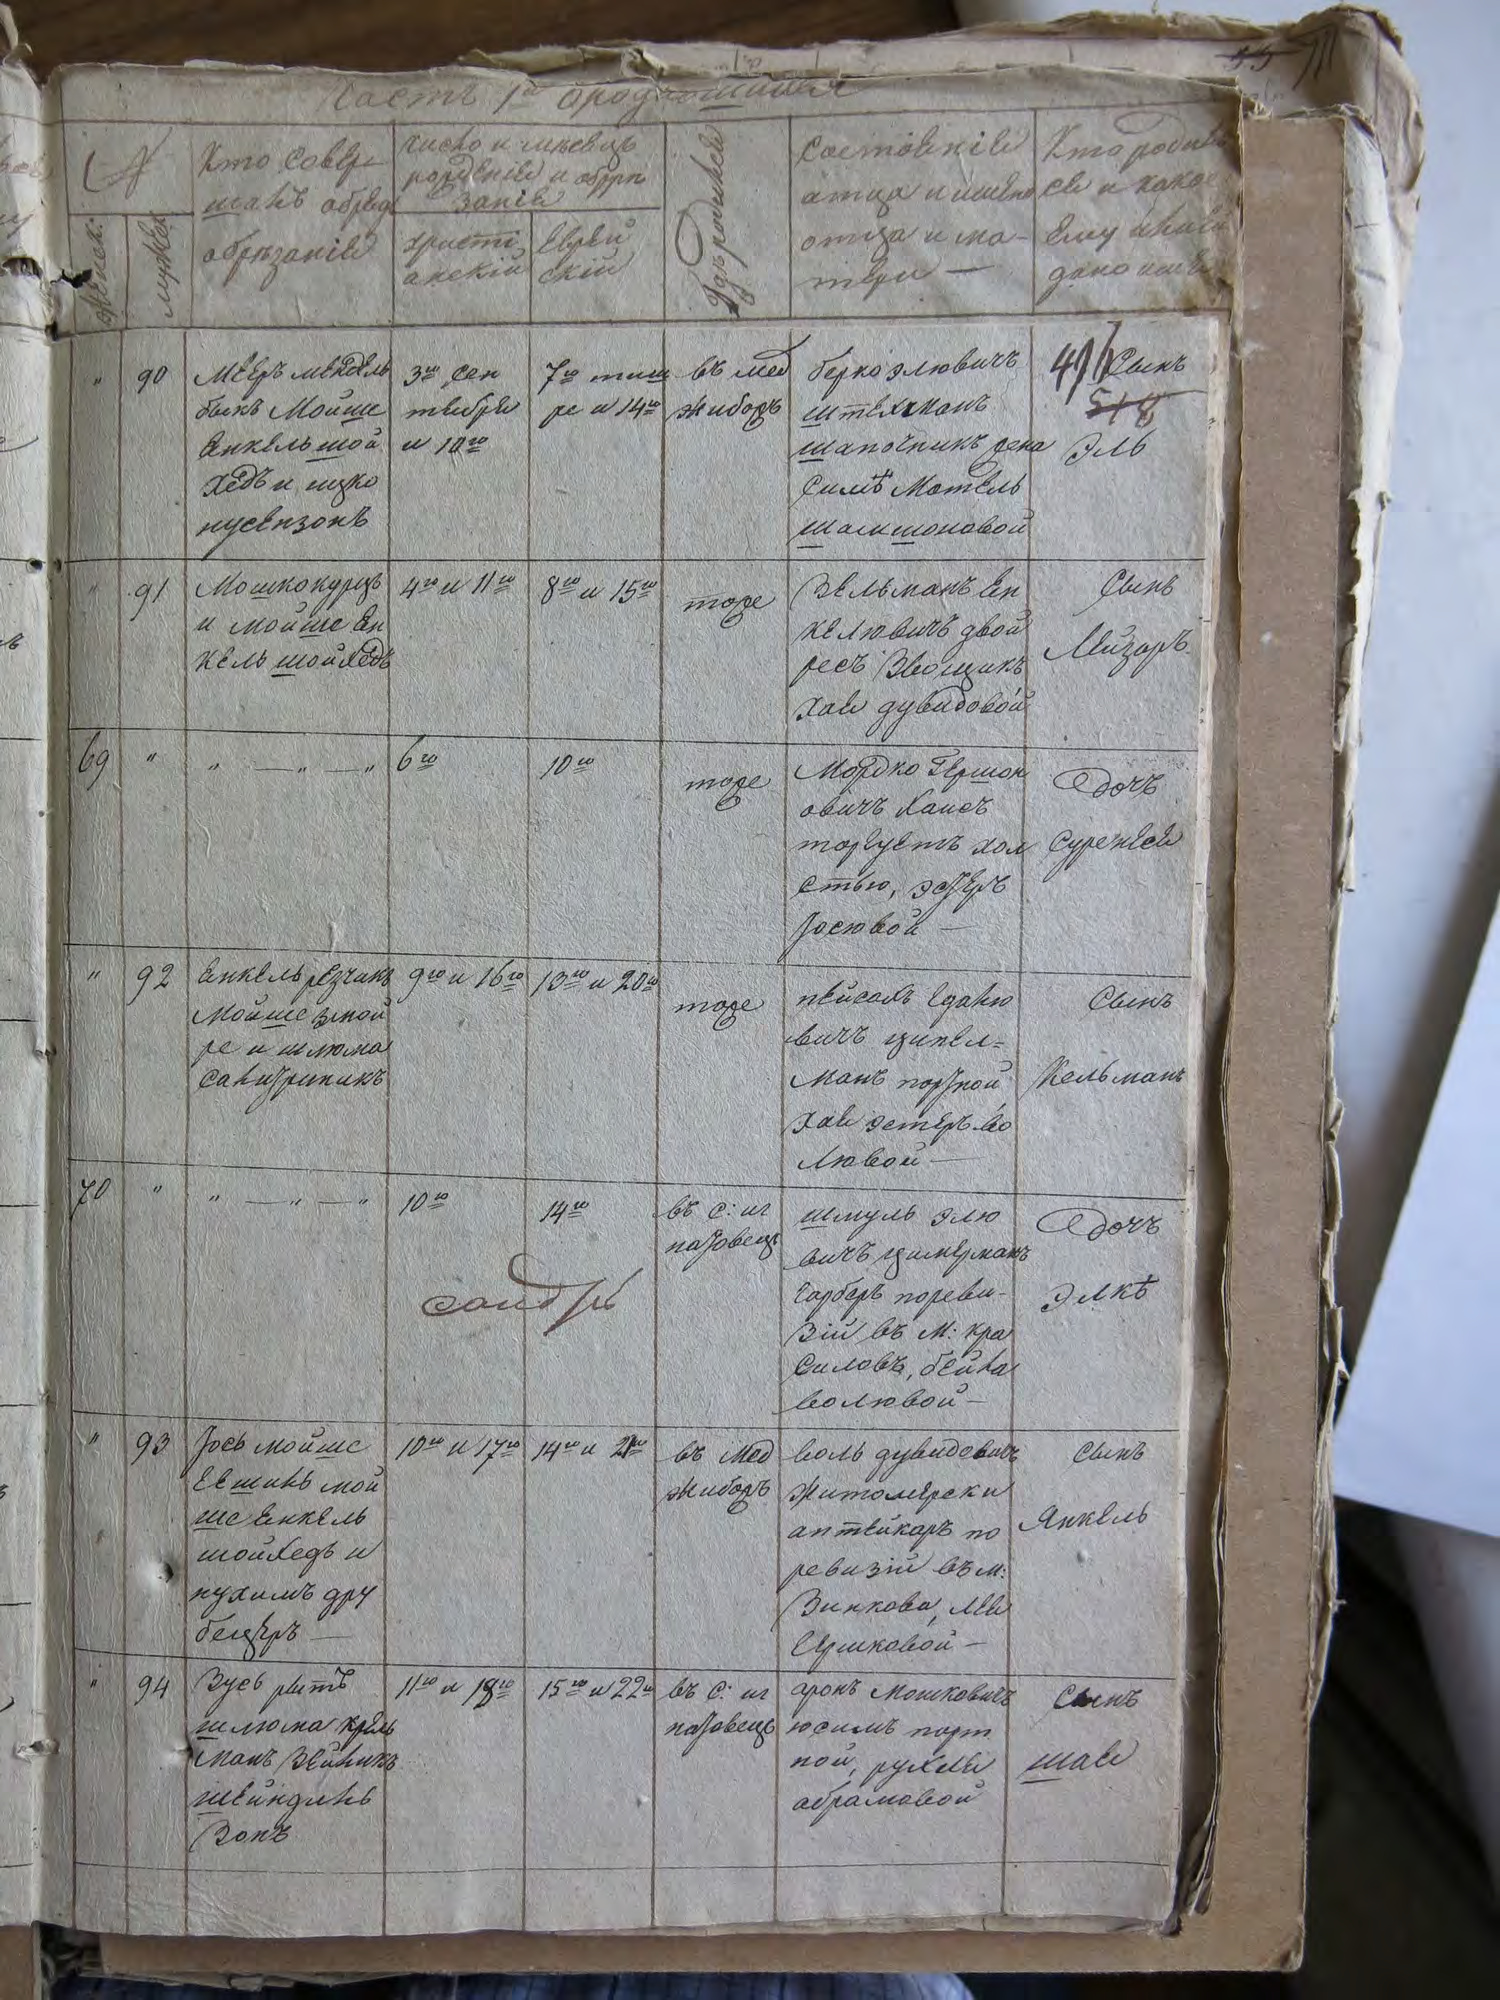 Часть 1я о родившихся
№
Женск:
мужеск:
Кто совер
шалъ обрядъ
обрѣзанія
число и мѣсяцъ
рожденія и обрѣ
занія
христі
анскій
Еврей
скій
Гдѣ родился
Состояніе
отца и имена
отца и ма-
тери —
Кто родил
ся и какое
Ему или ей
дано имя
" 90
Мееръ мендель
быкъ Мойше
Енкель шой
хедъ и ицко
нусензонъ
3го сен
тября
и 10го
7го тиш
ре и 14го
въ мед
жиборѣ
берко элювичъ
штехманъ
шапочникъ
Симѣ Мотель
шамшоновой
Сынъ
518
Эль
" 91
Мошко курцъ
и мойше Ен
кель шойхедъ
4го и 11го
8го и 15го
тоже
Зельманъ Ен
келювичъ двой
ресъ
хая дувидовой
Сынъ
Лейзоръ
69 " " — " — "
6го
10го
тоже
Мордко Гершон
овичъ Хаисъ
торгуетъ хол
стью, эстеръ
Іосювой —
Дочъ
Сурения
" 92
Енкель резчикъ
Мойше змой
ре и шлюма
9го и 16го
13го и 20го
тоже
пейсахъ
вичъ ципел=
манъ портной
хая эстеръ во
львовой —
Сынъ
Кельманъ
70 " " — " — "
10го
14го
въ с: иг
натовецъ
шмуль элю
вичъ цимерманъ
гарберъ по реви-
зіи въ м: кра
силовъ, бейла
волювой —
Дочъ
Элкѣ
" 93
Іось мойше
Евшинъ мой
ше Енкель
шойхедъ и
нухимъ дру
10го и 17го
14го и 21го
въ мед
жиборѣ
воль дувидовичъ
житомерски
аптейкаръ по
ревизіи въ м:
Зинкова, лея
Гершковой —
Сынъ
Янкель
" 94
Зусь
шлюма крель
манъ Зейликъ
шейндиль
Зонъ
11го и 18го
15го и 22го
въ с: иг
натовецъ
аронъ мошковичъ
юсимъ порт
ной, рухля
абрамовой
Сынъ
шая